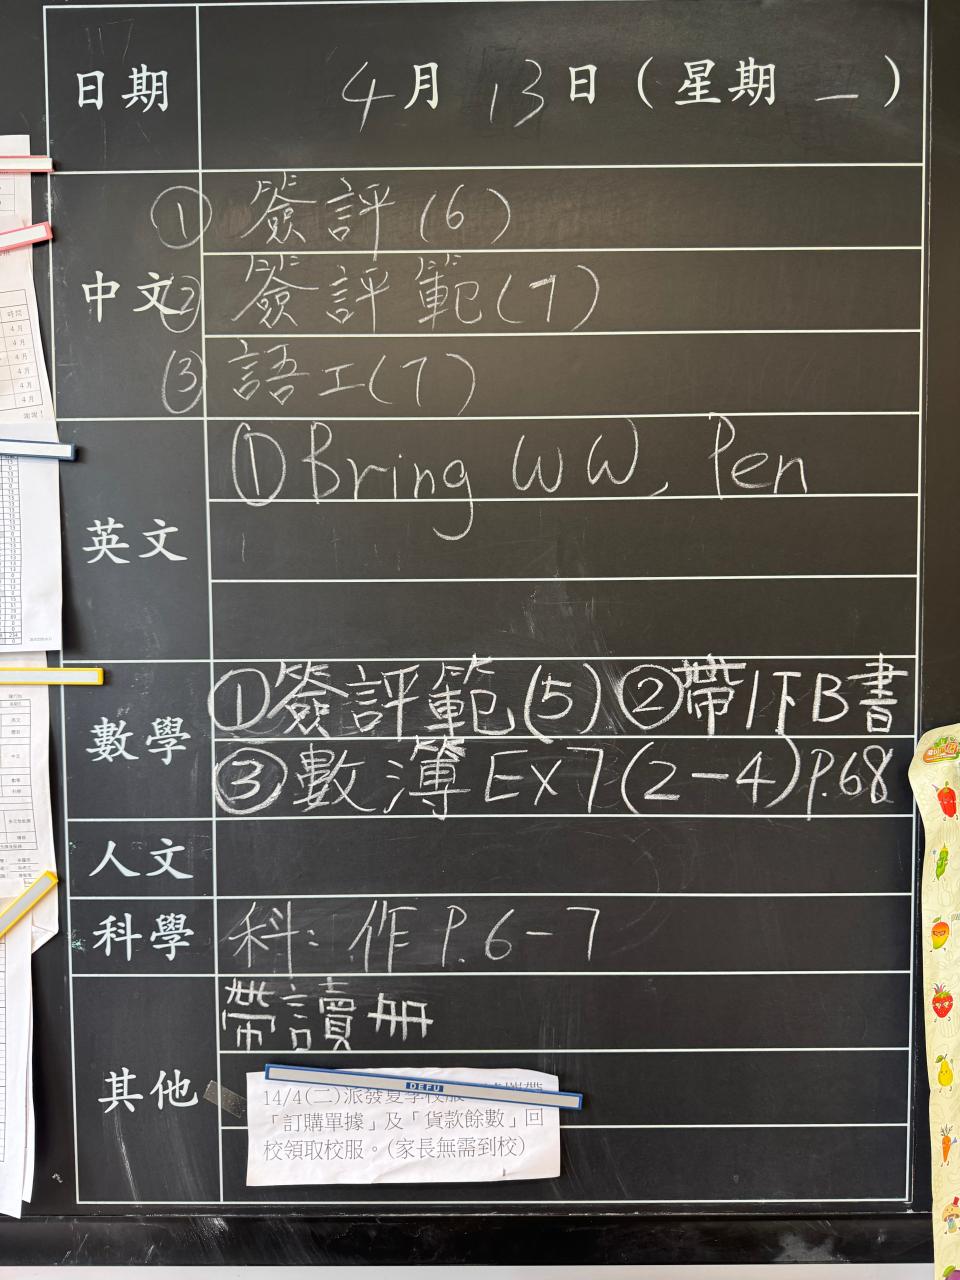 日期 4月13日(星期一)
中文
① 簽評(6)
② 簽評範(7)
③ 語工(7)
英文
① Bring WW, Pen
數學
①簽評範(5) ②帶1下B書
③數簿 EX7(2-4)P.68
人文
科學
科: 作 P.6-7
其他
帶讀冊
DEFU
14/4(二)派發夏季校服
「訂購單據」及「貨款餘數」回
校領取校服。(家長無需到校)
時間
4月
4月
4月
4月
4月
4月